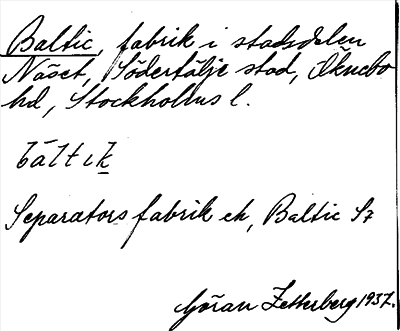 Baltic, fabrik i stadsdelen
Näset, Södertälje stad, Öknebo
hd, Stockholms l.
bàltik
Separators fabrik ek, Baltic
Göran Zetterberg 1937.